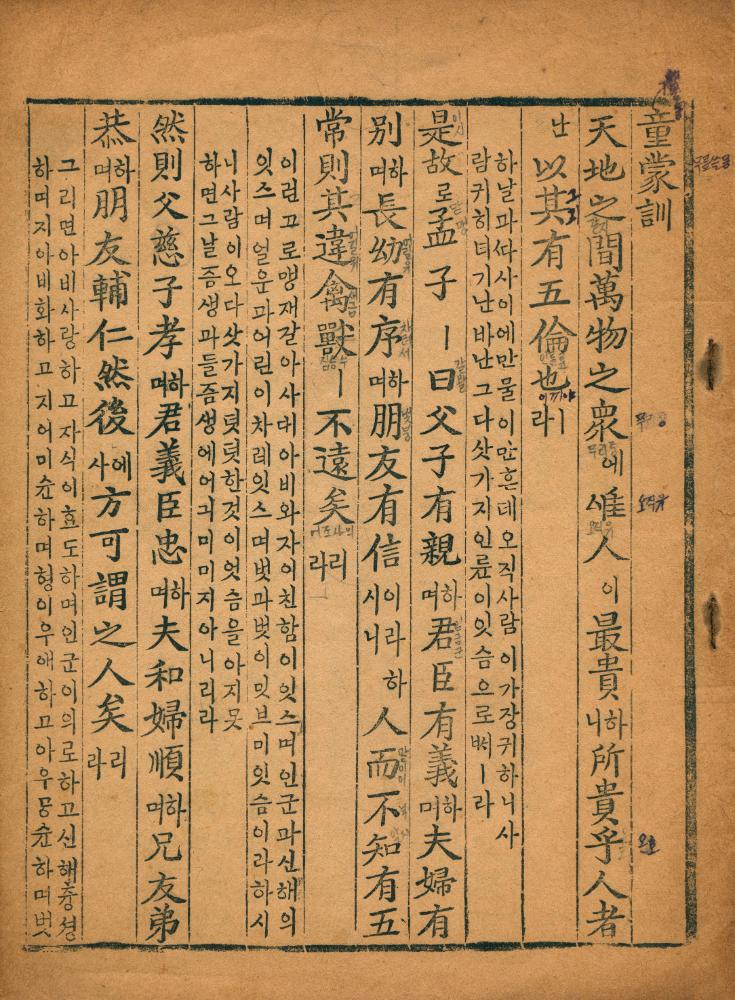 童蒙訓
天地之間萬物之衆에唯人이最貴하니所貴乎人者
난以其有五倫也ㅣ라
하날과ᄯᅡ사이에만물이만흔데오직사람이가장귀하니사
람귀히녀기난바난그다삿가지인륜이잇슴으로ᄡᅥㅣ라
是故로孟子ㅣ曰父子有親하며君臣有義하며夫婦有
別하며長幼有序하며朋友有信이라하시니人而不知有五
常則其違禽獸ㅣ不遠矣리라
이런고로맹재갈아사대아비와자이친함이잇스며인군과신해의
잇스며얼운과어린이차례잇스며벗과벗이밋브미잇슴이라하시
니사람이오다삿가지ᄯᅥᆺᄯᅥᆺ한것이엇슴을아지못
하면그날즘생과들즘생에어긔미미지아니리라
然則父慈子孝하며君義臣忠하며夫和婦順하며兄友弟
恭하며朋友輔仁然後에사方可謂之人矣리라
그리면아비사랑하고자식이효도하며인군이의로하고신해충셩
하며지아비화하고지어미슌하며형이우애하고아우공슌하며벗